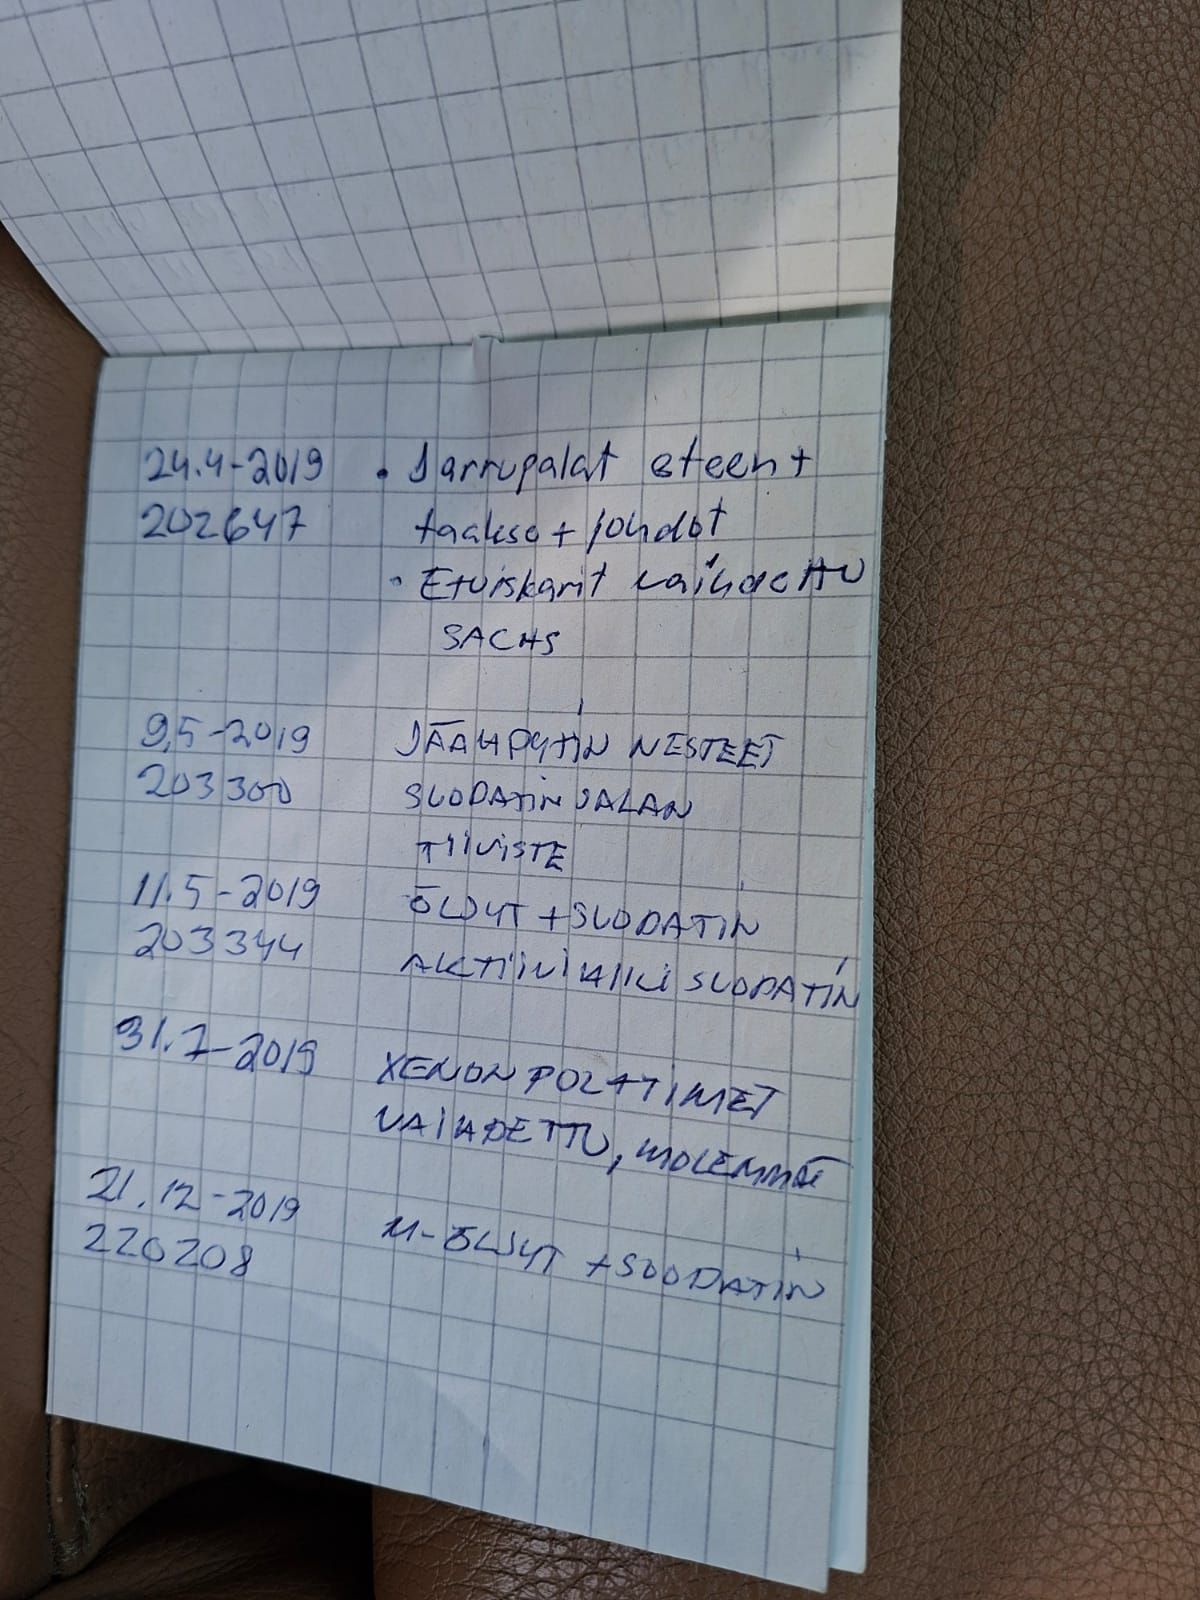 24.4-2019 • Jarrupalat eteen +
202647 taakse + johdot
• Etuiskarit vaihdettu
SACHS
9.5-2019 JÄÄHDYTIN NESTEET
203300 SUODATINJALAN
TIIVISTE
11.5-2019 ÖLJYT + SUODATIN
203344 AKTIIVIHIILI SUODATIN
31.7-2019 XENON POLTTIMET
VAIHDETTU, MOLEMMAT
21.12-2019 M-ÖLJYT + SUODATIN
220208